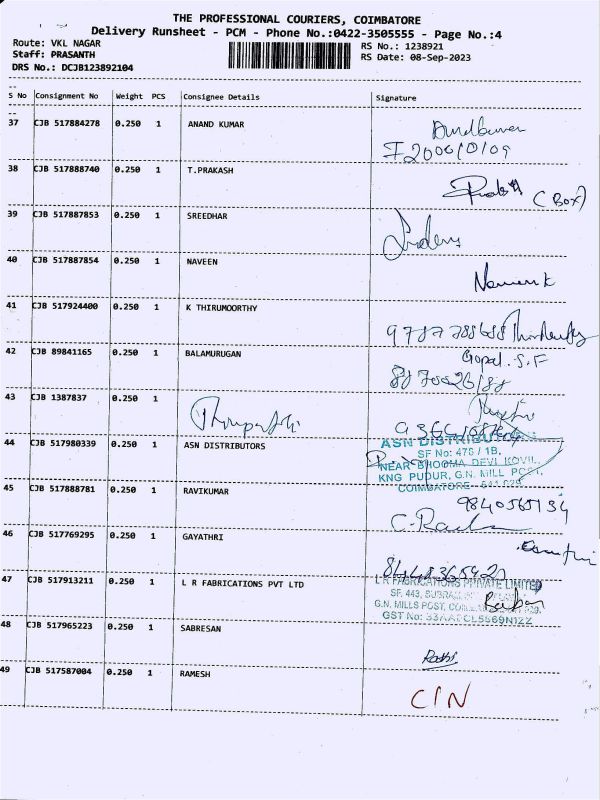 THE PROFESSIONAL COURIERS, COIMBATORE
Delivery Runsheet - PCM - Phone No.:0422-3505555 - Page No.:4
Route: VKL NAGAR
Staff: PRASANTH
DRS No.: DCJB123892104
RS No.: 1238921
RS Date: 08-Sep-2023
S No Consignment No Weight PCS Consignee Details Signature
37 CJB 517884278 0.250 1 ANAND KUMAR
38 CJB 517888740 0.250 1 T.PRAKASH
(BOX)
39 CJB 517887853 0.250 1 SREEDHAR
40 CJB 517887854 0.250 1 NAVEEN
Naveen k
41 CJB 517924400 0.250 1 K THIRUMOORTHY
42 CJB 89841165 0.250 1 BALAMURUGAN
Gopal. S.F
43 CJB 1387837 0.250 1
44 CJB 517980339 0.250 1 ASN DISTRIBUTORS
ASN DISTRIBU
SF No: 476 / 1B,
NEAR BHOOMA DEVI KOVIL,
KNG PUDUR, G.N. MILL POST,
COIMBATORE
45 CJB 517888781 0.250 1 RAVIKUMAR
9840565134
46 CJB 517769295 0.250 1 GAYATHRI
47 CJB 517913211 0.250 1 L R FABRICATIONS PVT LTD
L R FABRICATIONS PRIVATE LIMITED
SF. 443,
G.N. MILLS POST,
GST No:
48 CJB 517965223 0.250 1 SABRESAN
49 CJB 517587004 0.250 1 RAMESH
C/N